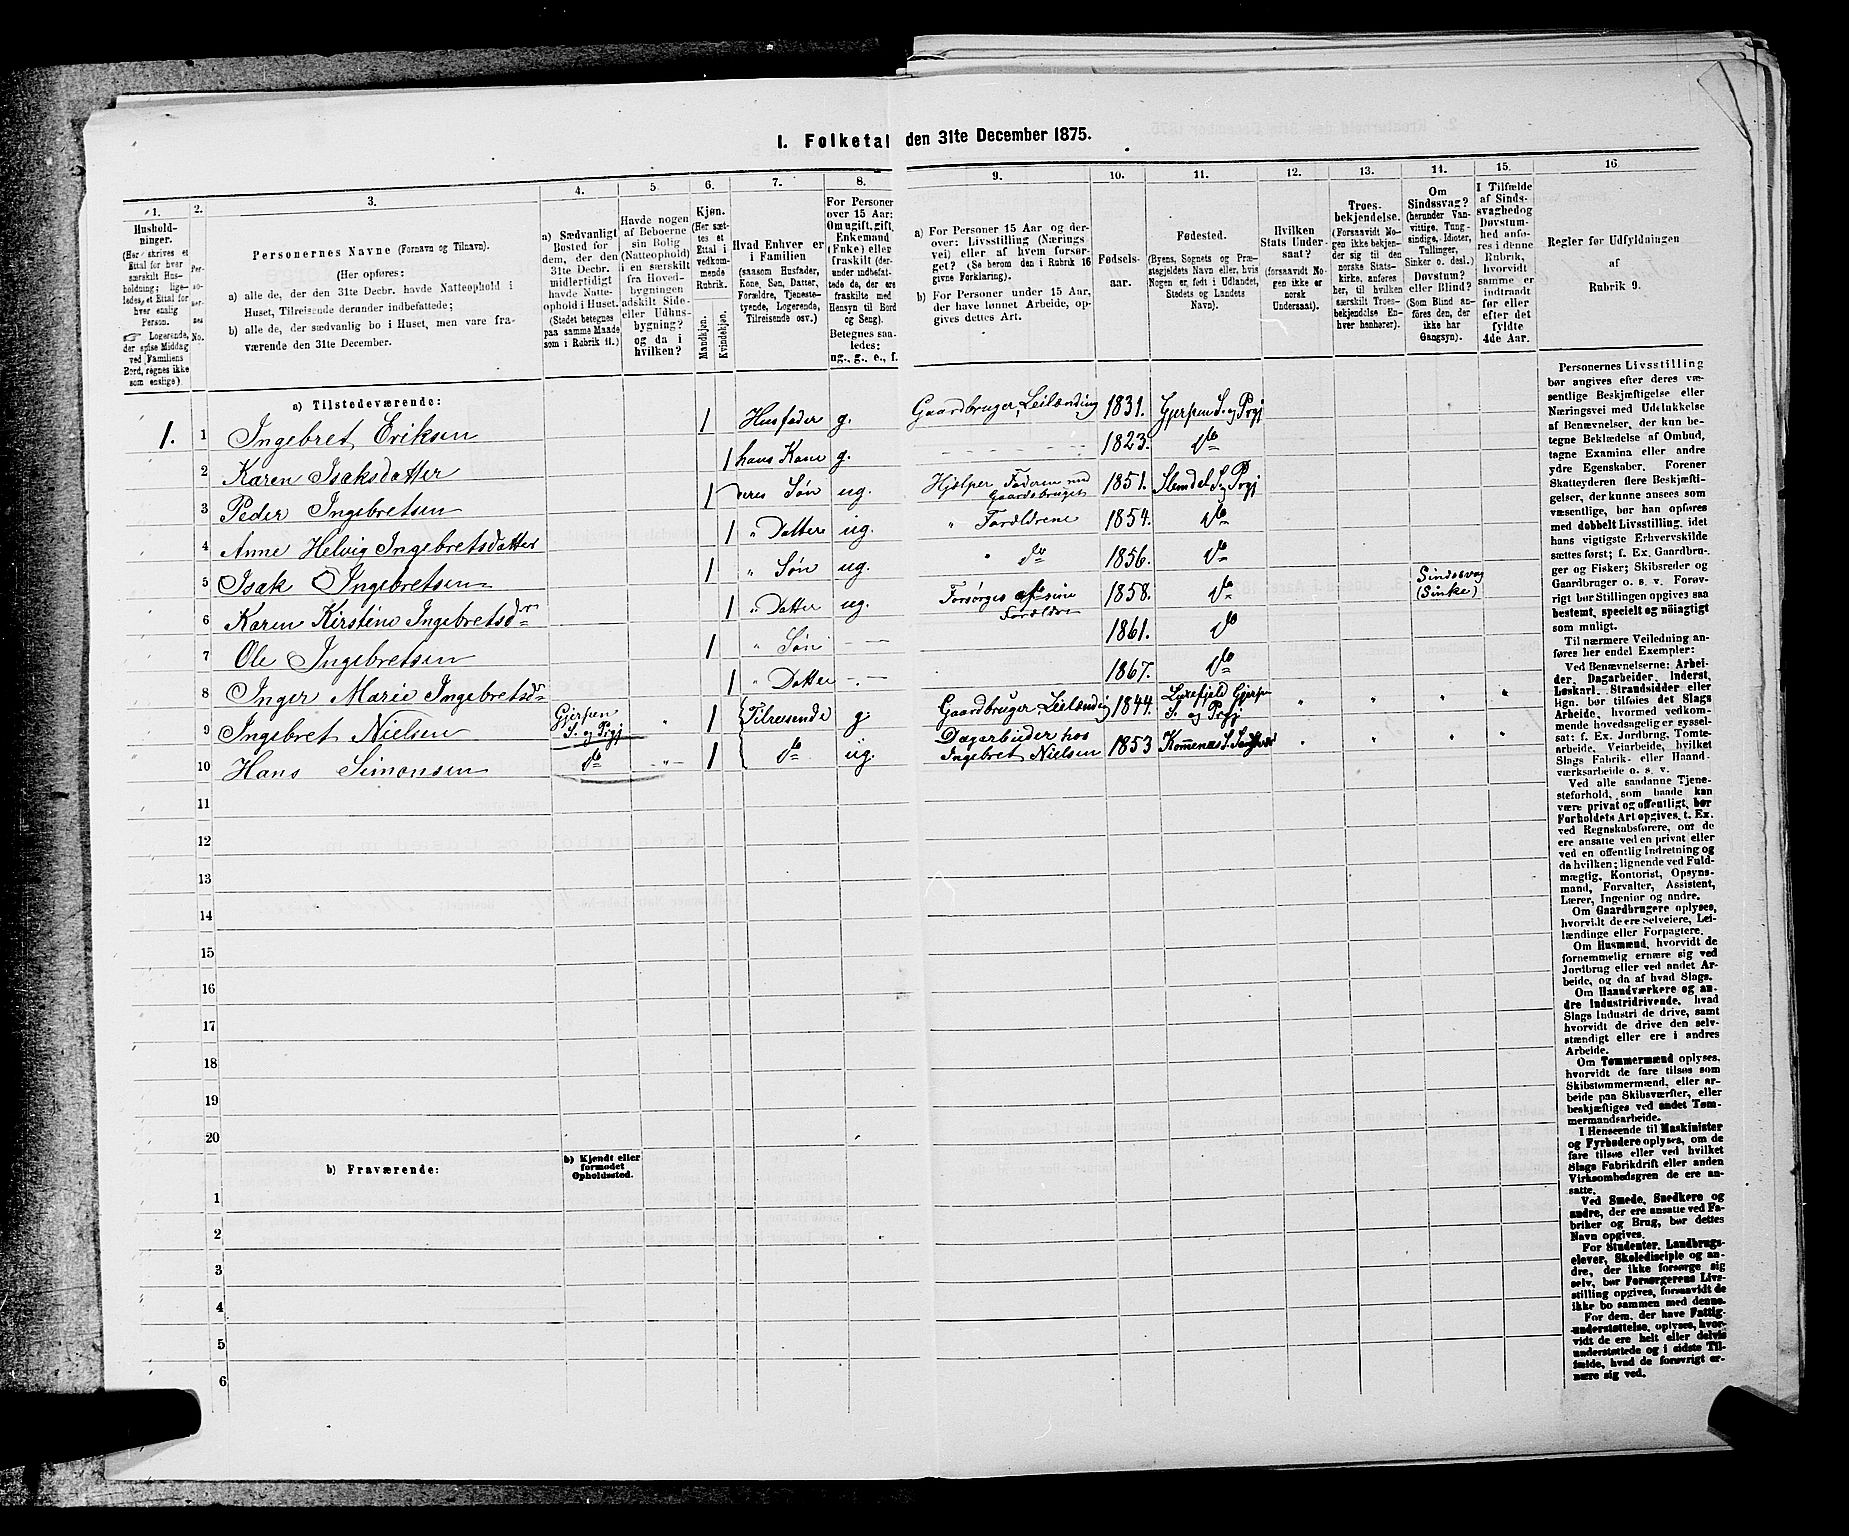 I. Folketal den 31te December 1875.
1.
Husholdninger.
(Her skrives et Ettal for hver særskilt Husholdning; ligeledes et Ettal for hver enslig Person.
Logerende, der spise Middag ved Familiens Bord, regnes ikke som enslige).
2.
Personernes No.
3.
Personernes Navne (Fornavn og Tilnavn).
(Her opføres:
a) alle de, der den 31te Decbr. havde Natteophold i Huset, Tilreisende derunder indbefattede;
b) alle de, der sædvanlig bo i Huset, men vare fraværende den 31te December.
4.
a) Sædvanligt Bosted for dem, der den 31te Decbr. midlertidigt havde Natteophold i Huset.
(Stedet betegnes paa samme Maade som i Rubrik 11.)
5.
Havde nogen af Beboerne sin Bolig (Natteophold) i en særskilt fra Hovedbygningen adskilt Side- eller Udhusbygning? og da i hvilken?
6.
Kjøn.
(Her sættes et Ettal i vedkommende Rubrik.
Mandkjøn.
Kvindekjøn.
7.
Hvad Enhver er i Familien
(saasom Husfader, Kone, Søn, Datter, Forældre, Tjenestetyende, Logerende, Tilreisende osv.)
8.
For Personer over 15 Aar: Om ugift, gift, Enkemand (Enke) eller fraskilt (derunder indbefattede de, der ere fraskilte med Hensyn til Bord og Seng).
Betegnes saaledes: ug., g., e., f.
9.
a) For Personer 15 Aar og derover: Livsstilling (Næringsvei) eller af hvem forsørget? (Se herom den i Rubrik 16 givne Forklaring).
b) For Personer under 15 Aar, der have lønnet Arbeide, opgives dettes Art.
10.
Fødselsaar.
11.
Fødested.
(Byens, Sognets og Præstegjeldets Navn eller, hvis Nogen er født i Udlandet, Stedets og Landets Navn).
12.
Hvilken Stats Undersaat?
(forsaavidt Nogen ikke er norsk Undersaat).
13.
Troesbekjendelse.
(Forsaavidt Nogen ikke bekjender sig til den norske Statskirke, anføres her, til hvilken særskilt Troesbekjendelse Enhver henhører).
14.
Om Sindssvag?
(herunder Vanvittige, Tungsindige, Idioter, Tullinger, Sinker o. desl.)
Døvstum? eller Blind?
(Som Blind anføres den, der ikke har Gangsyn).
15.
I Tilfælde af Sindssvaghed og Døvstumhed anføres i denne Rubrik, hvorvidt samme er indtraadt før eller efter det fyldte 4de Aar.
16.
Regler for Udfyldningen af Rubrik 9.
a) Tilstedeværende:
1. 1 Ingebret Eriksen 1 Husfader g. Gaardbruger, Leilænding 1831. Gjerpen S. og Prgj
2 Karen Isaksdatter 1 hans Kone g. 1823. do
3 Peder Ingebretsen 1 deres Søn ug. Hjælper Faderen med Gaardsbruget 1851. Slemdal S. og Prgj
4 Anne Helvig Ingebretsdatter 1 " Datter ug. " Forældrene 1854. do
5 Isak Ingebretsen 1 " Søn ug. " do 1856. do
6 Karen Kirstine Ingebretsdr 1 " Datter ug. Forsørges af sine Forældre 1858. do Sindssvag (Sinke)
7 Ole Ingebretsen 1 " Søn — 1861. do
8 Inger Marie Ingebretsdr 1 " Datter — 1867. do
9 Ingebret Nielsen Gjerpen S. og Prgj " 1 Tilreisende g. Gaardbruger, Leilænding 1844. Gjerpen S. og Prgj " " " "
10 Hans Simonsen do " 1 do ug. Dagarbeider hos Ingebret Nielsen 1853 " " " "
11
12
13
14
15
16
17
18
19
20
b) Fraværende:
b) Kjendt eller formodet Opholdssted.
1
2
3
4
5
6
Personernes Livsstilling
bør angives efter deres væ-
sentlige Beskjæftigelse eller
Næringsvei med Udelukkelse
af Benævnelser, der kun be-
tegne Beklædelse af Ombud,
tagne Examina eller andre
ydre Egenskaber. Forener
Skatteyderen flere Beskjæfti-
gelser, der kunne ansees som
væsentlige, bør han opføres
med dobbelt Livsstilling, idet
hans vigtigste Erhvervskilde
sættes først; f. Ex. Gaardbru-
ger og Fisker; Skibsreder og
Gaardbruger o. s. v. Forøv-
rigt bør Stillingen opgives saa
bestemt, specielt og nøiagtigt
som muligt.
Til nærmere Veiledning an-
føres her endel Exempler:
Ved Benævnelserne: Arbei-
der, Dagarbeider, Inderst,
Løskarl, Strandsidder eller
lign. bør tilføies det Slags
Arbeide, hvormed vedkom-
mende hovedsagelig er syssel-
sat; f. Ex. Jordbrug, Tomte-
arbeide, Veiarbeide, hvilket
Slags Fabrik- eller Haand-
værksarbeide o. s. v.
Ved alle saadanne Tjene-
steforhold, som baade kan
være privat og offentligt, bør
Forholdets Art opgives, t. Ex.
ved Regnskabsførere, om de
ere ansatte ved en privat eller
ved en offentlig Indretning og
da hvilken; lignende ved Fuld-
mægtig, Kontorist, Opsyns-
mand, Forvalter, Assistent,
Lærer, Ingeniør og andre.
Om Gaardbrugere oplyses,
hvorvidt de ere Selveiere, Lei-
lændinge eller Forpagtere.
Om Husmænd, hvorvidt de
fornemmelig ernære sig ved
Jordbrug eller ved andet Ar-
beide, og da af hvad Slags.
Om Haandværkere og an-
dre Industridrivende, hvad
Slags Industri de drive, samt
hvorvidt de drive den selv-
stændigt eller ere i andres
Arbeide.
Om Tømmermænd oplyses,
hvorvidt de fare tilsøs som
Skibstømmermænd, eller ar-
beide paa Skibsværfter, eller
beskjæftiges ved andet Tøm-
mermandsarbeide.
I Henseende til Maskinister
og Fyrbødere oplyses, om de
fare tilsøs eller ved hvilket
Slags Fabrikdrift eller anden
Virksomhedsgren de ere an-
satte.
Ved Smede, Snedkere og
andre, der ere ansatte ved Fa-
briker og Brug, bør dettes
Navn opgives.
For Studenter, Landbrugs-
elever, Skoledisciple og an-
dre, der ikke forsørge sig
selv, bør Forsørgerens Livs-
stilling opgives, forsaavidt de
ikke bo sammen med denne.
For dem, der have Fattig-
understøttelse, oplyses, hvor-
vidt de ere helt eller delvis
understøttede og i sidste Til-
fælde, hvad de forøvrigt er-
nære sig ved.